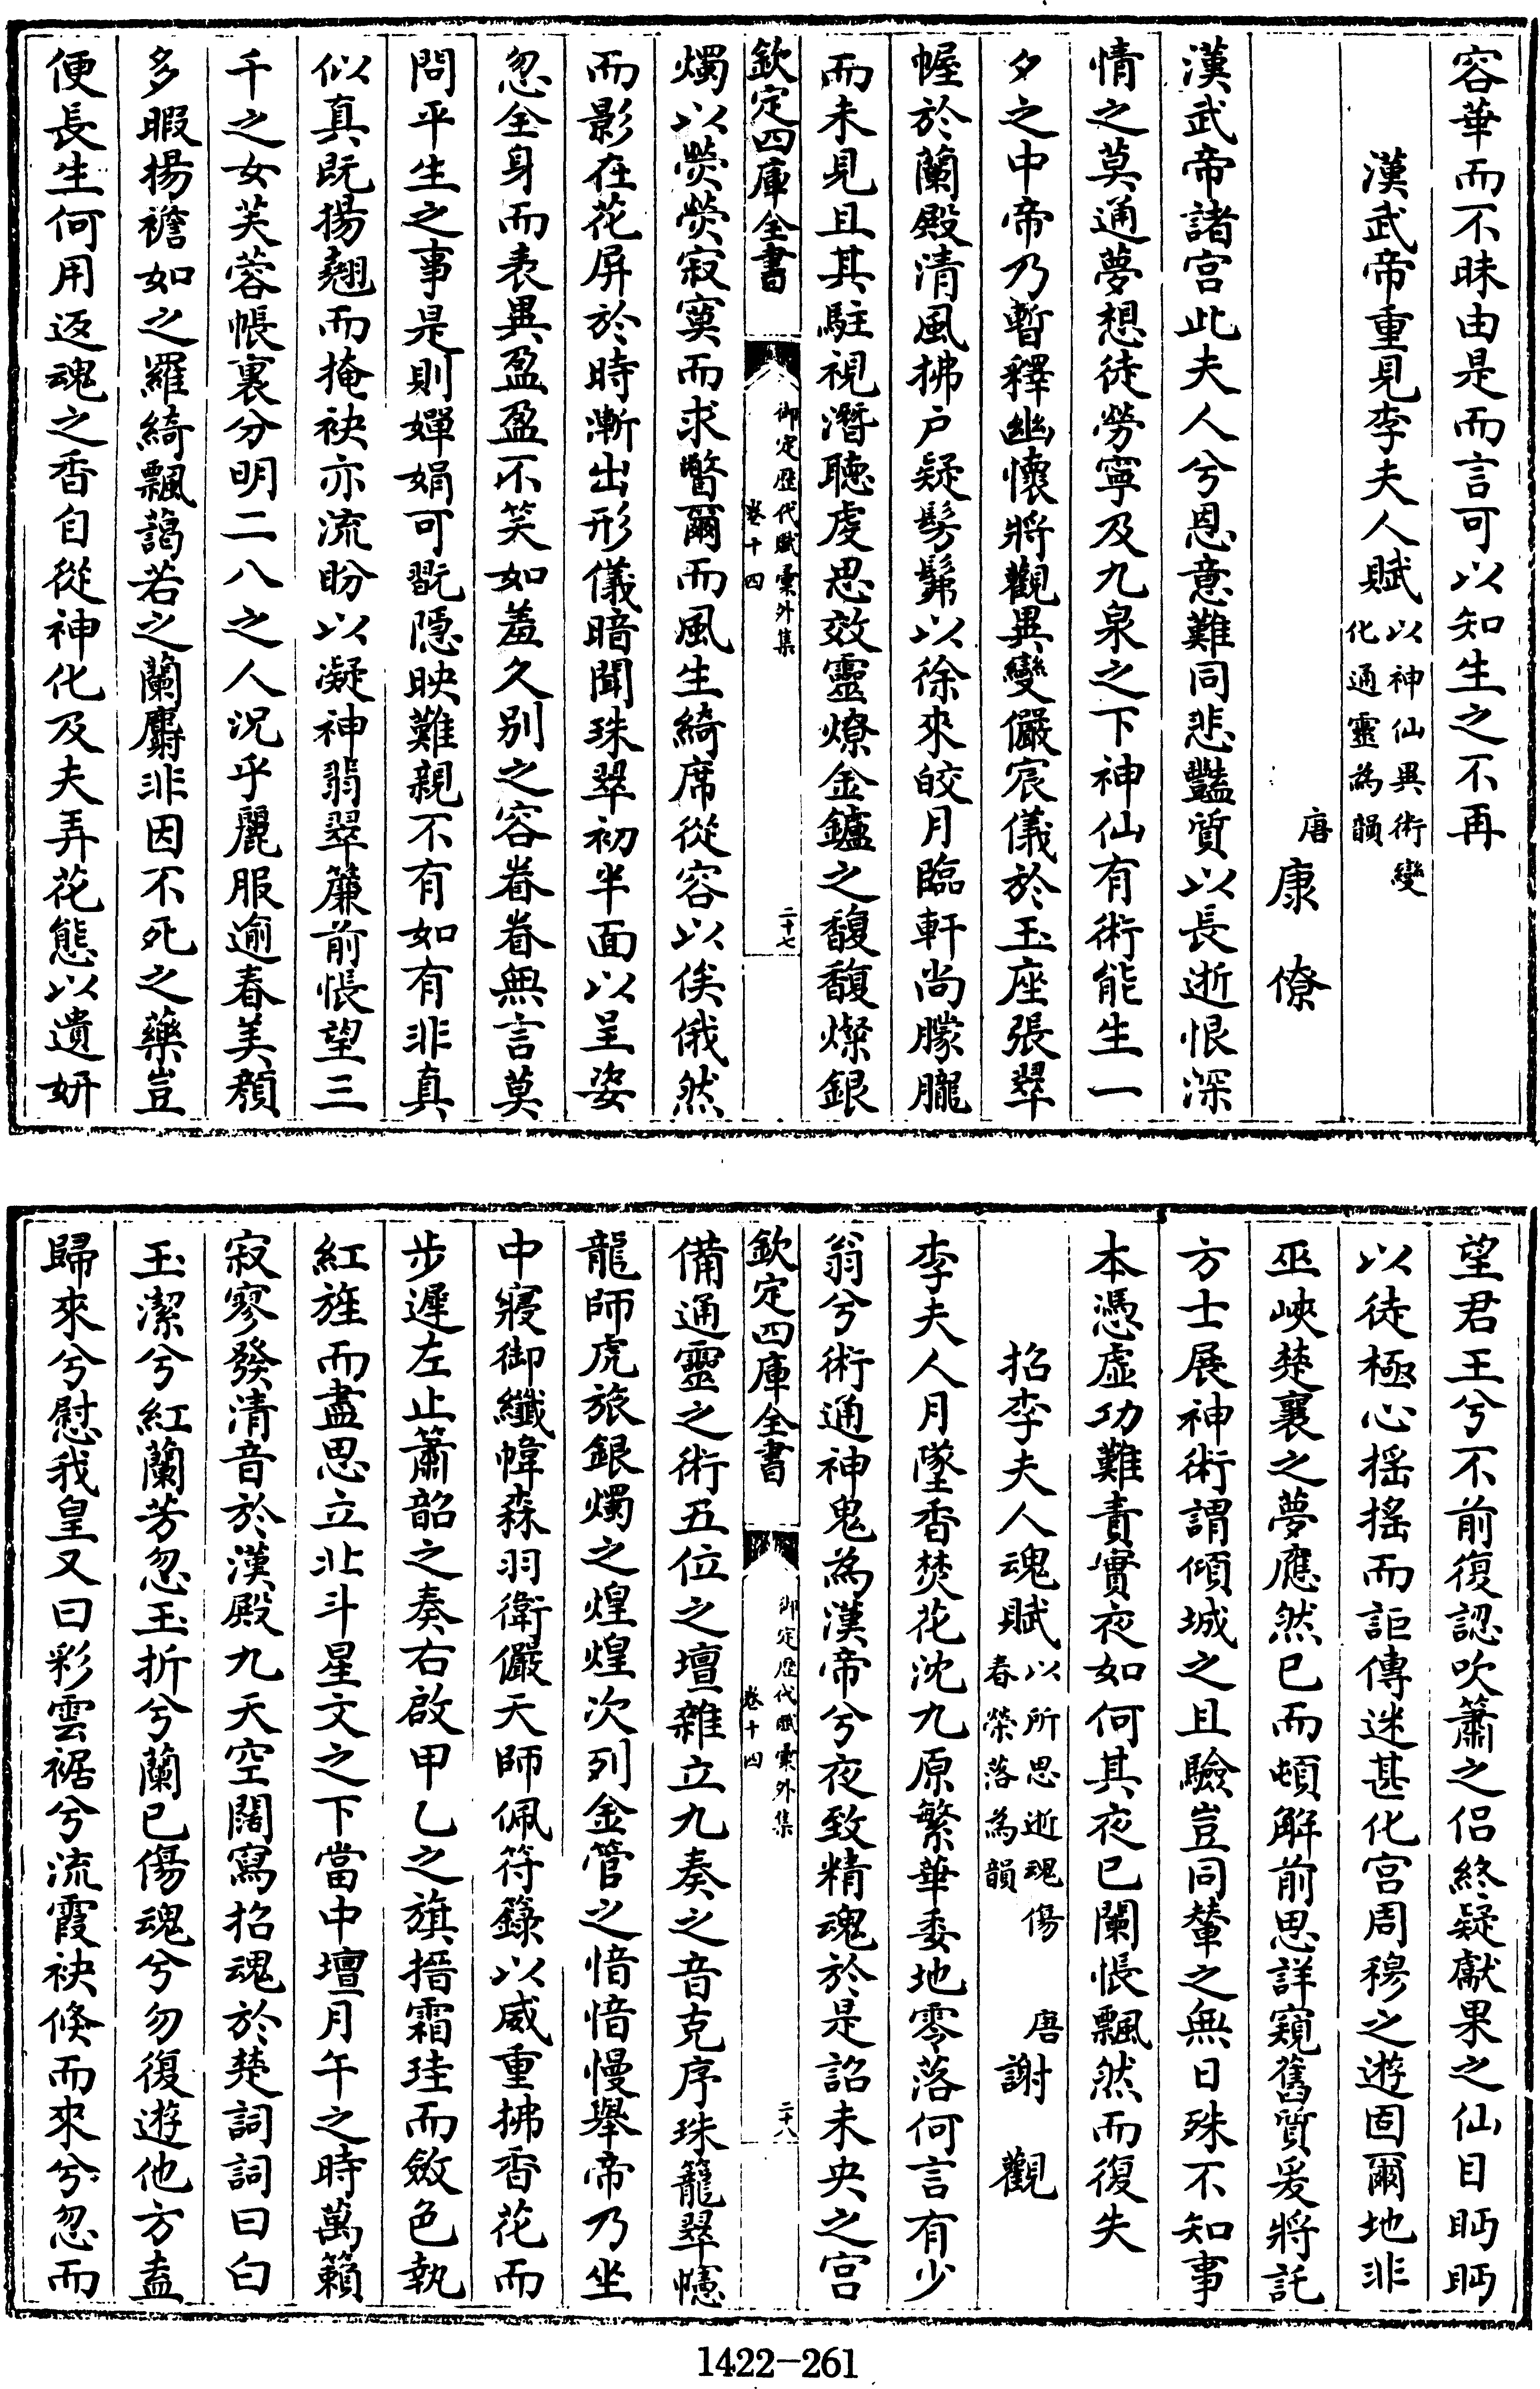 容華而不昧由是而言可以知生之不再
漢武帝重見李夫人賦以神仙異術變化通靈為韻
唐康僚
漢武帝諸宮此夫人兮恩意難同悲豔質以長逝恨深
情之莫通夢想徒勞寧及九泉之下神仙有術能生一
夕之中帝乃暫釋幽懷將觀異變儼宸儀於玉座張翠
幄於蘭殿清風拂户疑髣髴以徐來皎月臨軒尚朦朧
而未見且其駐視潛聽虔思效靈燎金鑪之馥馥燦銀
欽定四庫全書
御定歷代賦彙外集
卷十四
二十七
燭以熒熒寂寞而求瞥爾而風生綺席從容以俟俄然
而影在花屏於時漸出形儀暗聞珠翠初半面以呈姿
忽全身而表異盈盈不笑如羞久别之容眷眷無言莫
問平生之事是則嬋娟可翫隱映難親不有如有非真
似真既揚翹而掩袂亦流盼以凝神翡翠簾前悵望三
千之女芙蓉帳裏分明二八之人況乎麗服逾春美顏
多暇揚襜如之羅綺飄藹若之蘭麝非因不死之藥豈
便長生何用返魂之香自從神化及夫弄花態以遺妍
望君王兮不前復認吹簫之侣終疑獻果之仙目眄眄
以徒極心摇摇而詎傳迷甚化宮周穆之遊固爾地非
巫峽楚襄之夢應然已而頓解前思詳窺舊質爰將託
方士展神術謂傾城之且驗豈同輦之無日殊不知事
本憑虛功難責實夜如何其夜已闌悵飄然而復失
招李夫人魂賦以所思逝魂傷春榮落為韻
唐謝觀
李夫人月墜香焚花沈九原繁華委地零落何言有少
翁兮術通神鬼為漢帝兮夜致精魂於是詔未央之宮
欽定四庫全書
御定歷代賦彙外集
卷十四
二十八
備通靈之術五位之壇雜立九奏之音克序珠籠翠幰
龍師虎旅銀燭之煌煌次列金管之愔愔慢舉帝乃坐
中寢御纖幃森羽衛儼天師佩符籙以威重拂香花而
步遲左止簫韶之奏右啟甲乙之旗搢霜珪而斂色執
紅旌而盡思立北斗星文之下當中壇月午之時萬籟
寂寥發清音於漢殿九天空闊寫招魂於楚詞詞曰白
玉潔兮紅蘭芳忽玉折兮蘭已傷魂兮勿復遊他方盍
歸來兮慰我皇又曰彩雲裾兮流霞袂倏而來兮忽而
1422-261